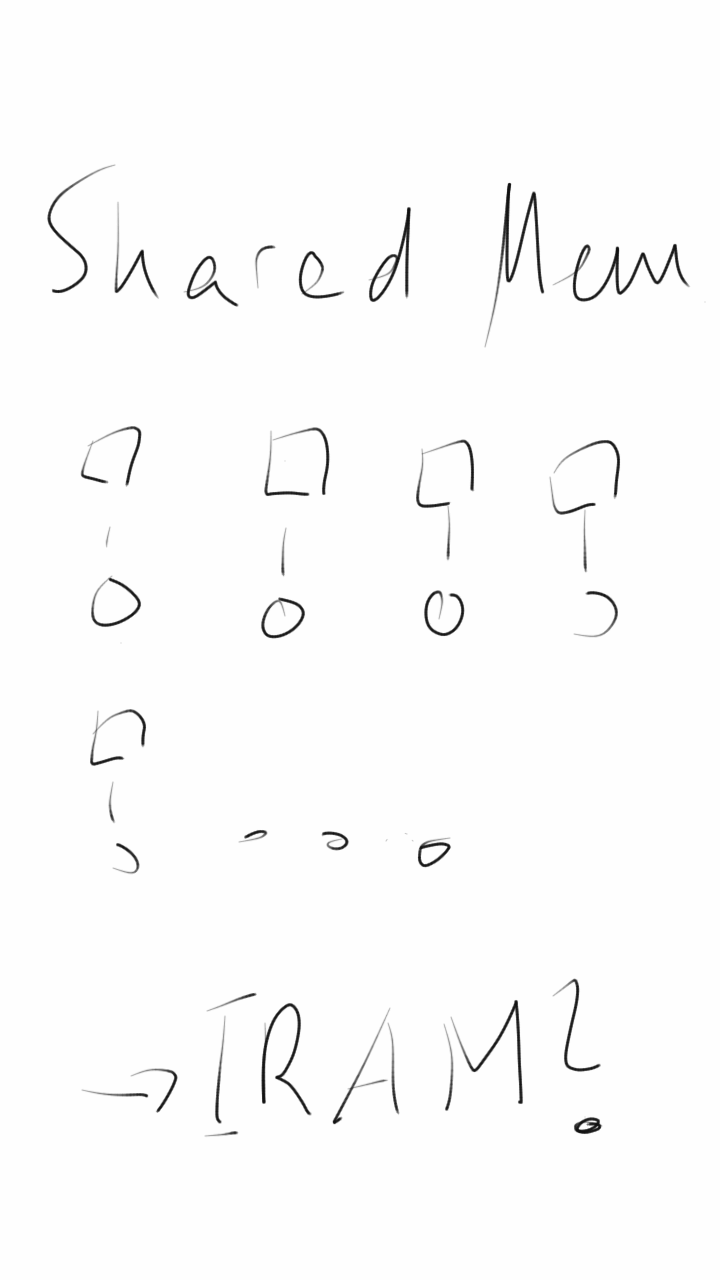 Shared Mem
→ IRAM?